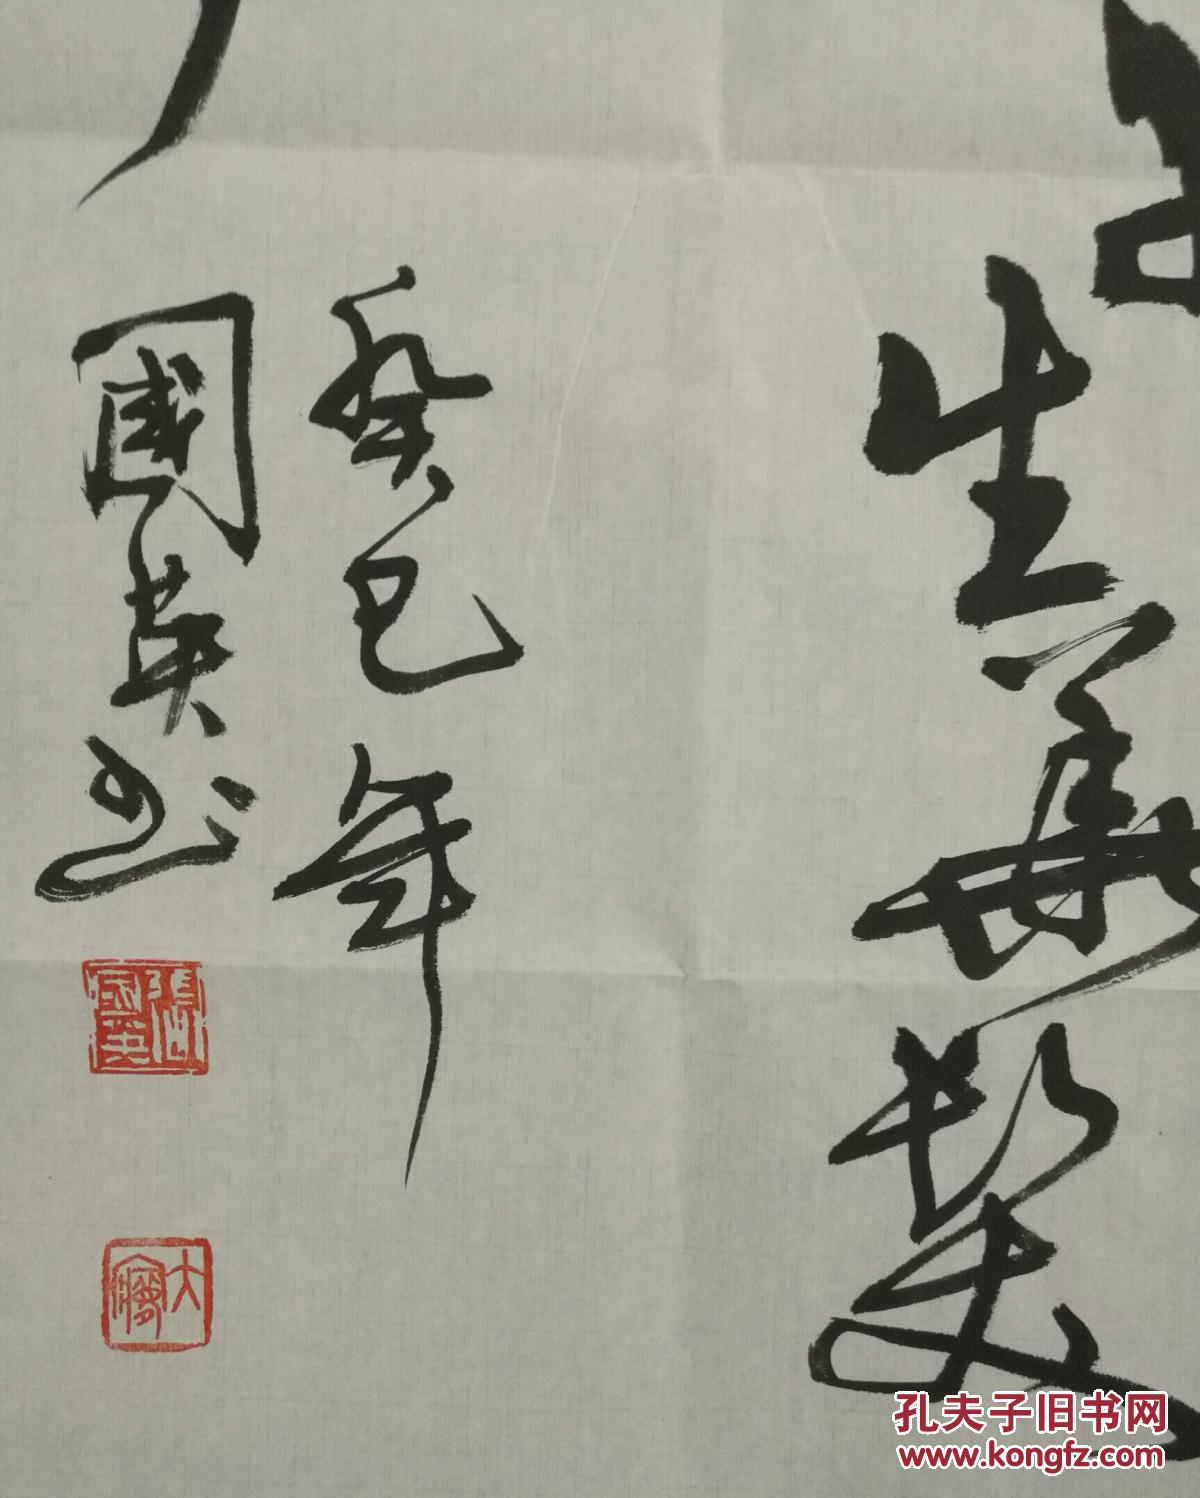 生華髮
癸巳年
國英书
張國英印
大寱
孔夫子旧书网
www.kongfz.com